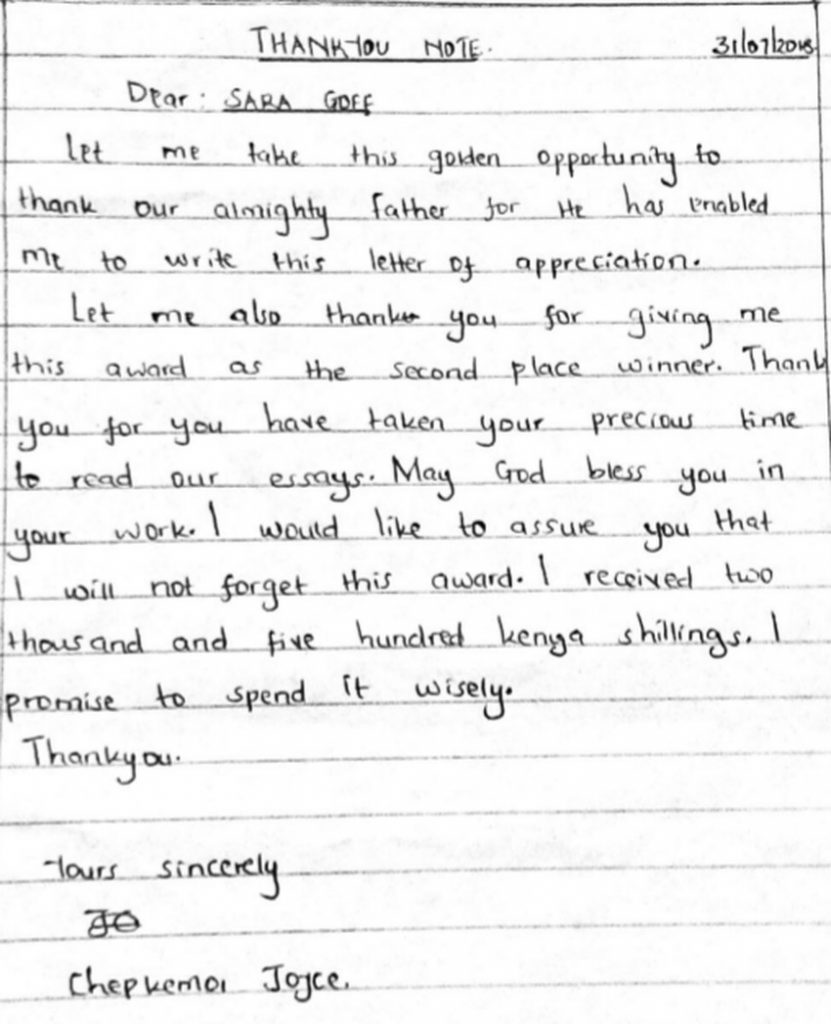 THANKYOU NOTE. 31/07/2018
Dear: SARA GOFF
Let me take this golden opportunity to
thank our almighty father for He has enabled
me to write this letter of appreciation.
Let me also thank you for giving me
this award as the second place winner. Thank
you for you have taken your precious time
to read our essays. May God bless you in
your work. I would like to assure you that
I will not forget this award. I received two
thousand and five hundred kenya shillings. I
promise to spend it wisely.
Thankyou.
Yours sincerely
Chepkemoi Joyce.